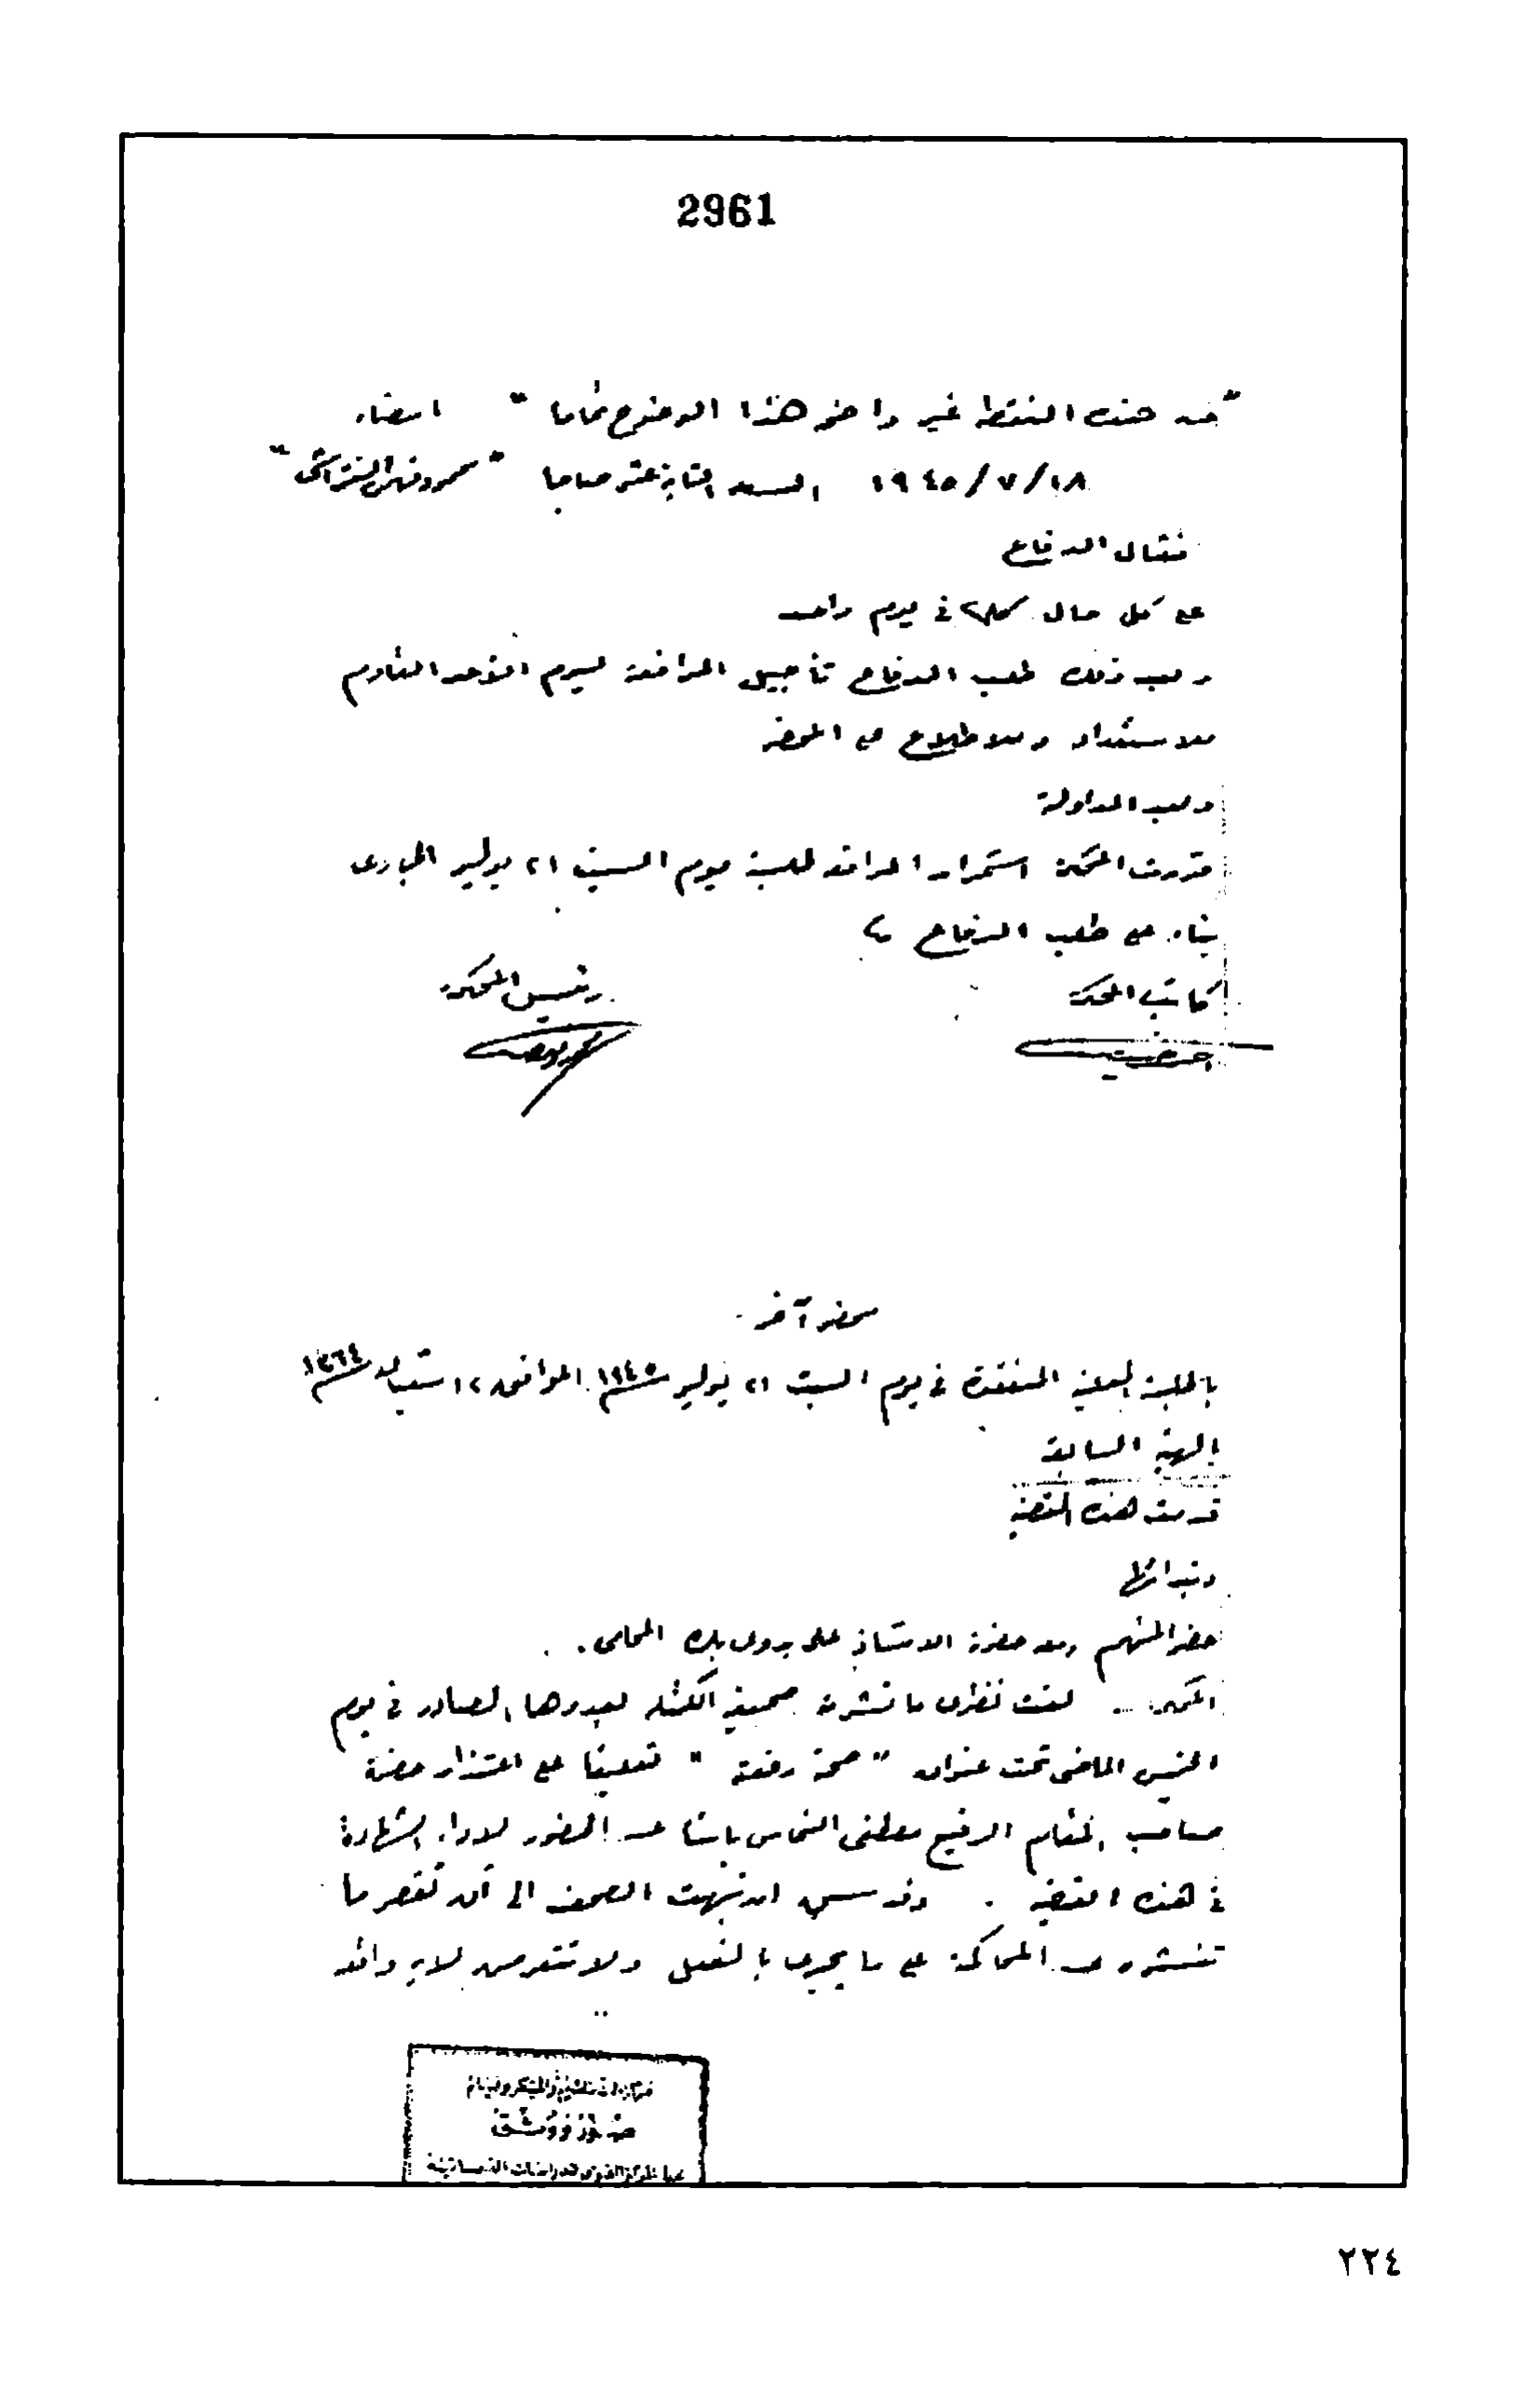 2961
" هذه النقط غير داخل هذا الموضوع تماما " امضاء
١٩٤٥/٧/١٨ الساعة الثانية عشر صباحا " محمود فهمى النقراشى "
فقال الدفاع
على كل حال فى يوم واحد
وبعد ذلك طلب الدفاع تأجيل المرافعة ليوم الأحد القادم
للاستعداد وللاطلاع على المحضر
وبعد المداولة
قررت المحكمة استمرار المرافعة لجلسة يوم السبت ٢١ يوليو الجارى
بناء على طلب الدفاع
كاتب المحكمة رئيس المحكمة
محضر آخر
بالجلسة العلنية المنعقدة فى يوم السبت ٢١ يوليو سنة ١٩٤٥ الموافق ١٢ شعبان سنة ١٣٦٤
بالهيئة السابقة
قدمت هذه القضية
وبندائها
حضر المتهم ومعه حضرة الاستاذ على بدوى بك المحامى .
المحكمة – لفت نظرى ما نشرته صحيفة الكتلة بعددها الصادر فى يوم
الخميس الماضى تحت عنوان " صحة رفعته " تعليقا على اعتذار حضرة
صاحب المقام الرفيع مصطفى النحاس باشا عن الحضور لاداء الشهادة
فى هذه القضية . وقد سبق ان نبهت الصحف الى أن تقصر ما
تنشره عن المحاكمة على ما يجرى بالفعل ولا تتعرض لأية واقعة
٢٢٤